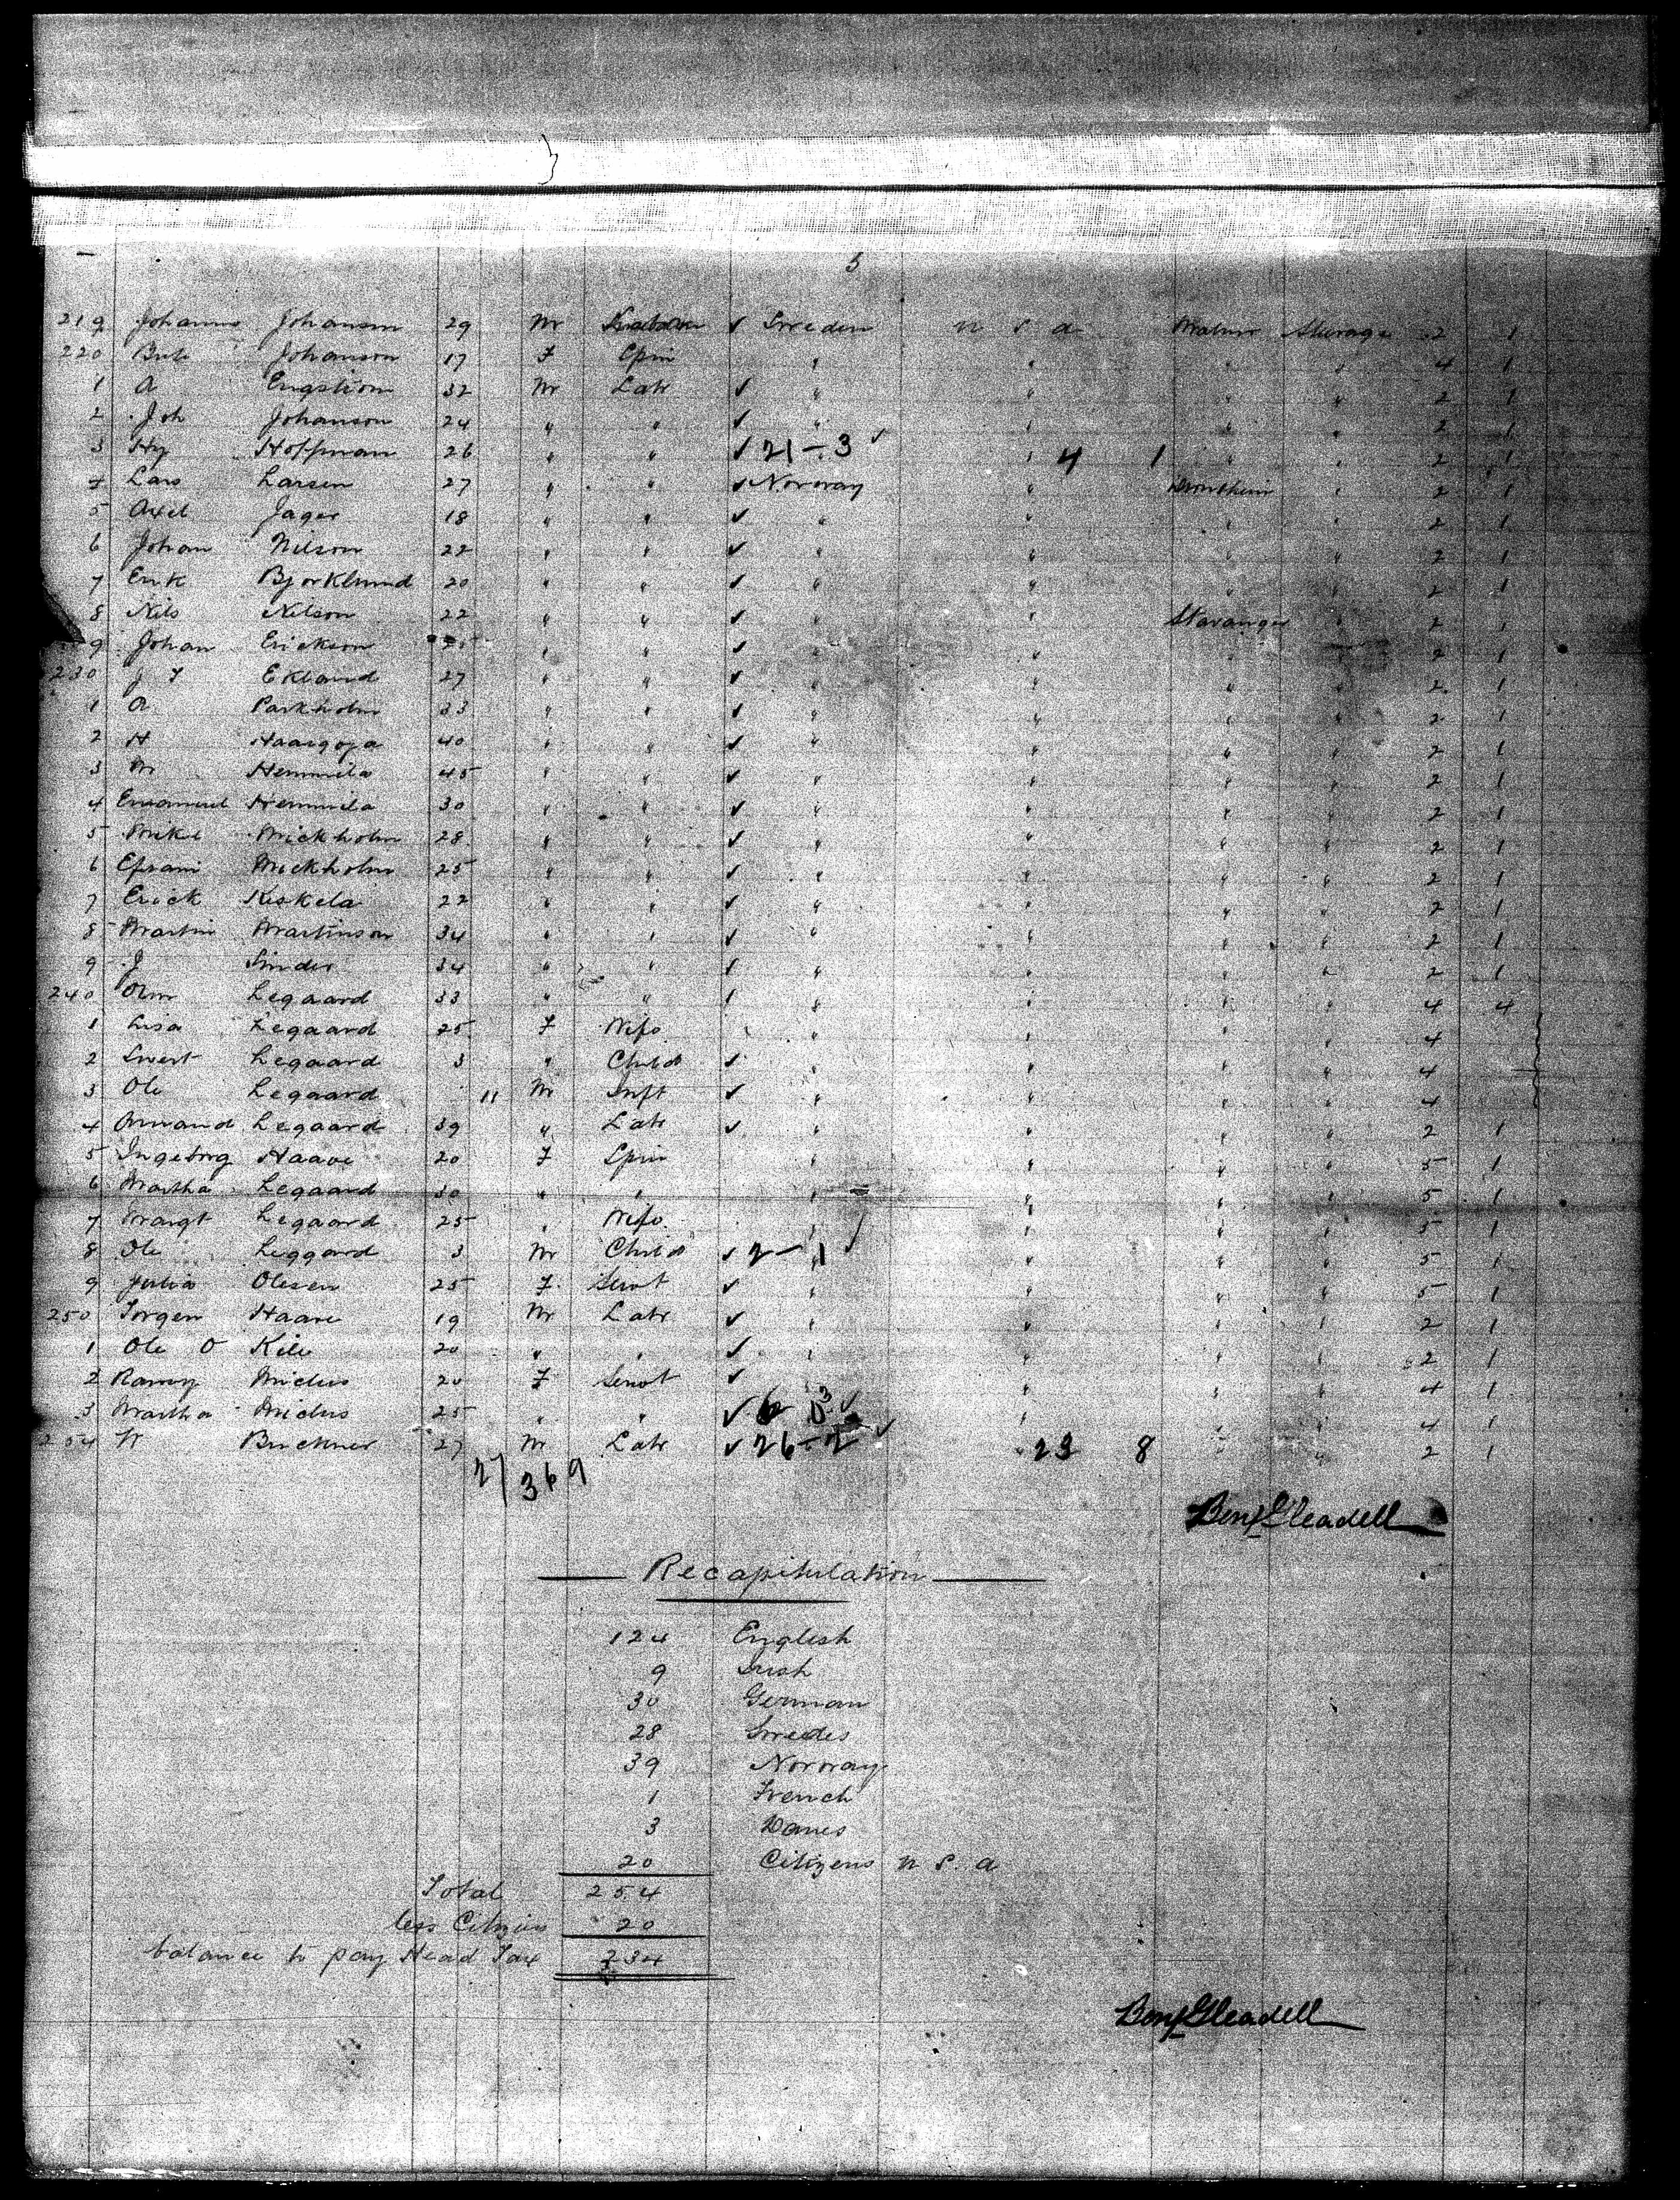 5
219 Johannes Johanson 29 M ✓ Sweden U S A Malmo Steerage 2 1
220 Johanson 17 F Spin " " " " 4 1
1 A Engstrom 32 M Labr ✓ " " " " 2 1
2 Joh Johanson 24 " " ✓ " " " " 2 1
3 Hy Hoffman 26 " " ✓ 21-3 ✓ " 4 1 " " 2 1
4 Lars Larsen 27 " " ✓ Norway " Drontheim " 2 1
5 Axel Jager 18 " " ✓ " " " " 2 1
6 Johan Nilson 22 " " ✓ " " " " 2 1
7 Erik Bjorklund 20 " " ✓ " " " " 2 1
8 Nils Nilson 22 " " ✓ " " Stavanger " 2 1
9 Johan Erickson " " ✓ " " " " 2 1
230 J F Ekland 27 " " ✓ " " " " 2 1
1 A Parkholm 33 " " ✓ " " " " 2 1
2 H Haargoja 40 " " ✓ " " " " 2 1
3 M Hemmila 45 " " ✓ " " " " 2 1
4 Emanuel Hemmila 30 " " ✓ " " " " 2 1
5 Mikel Mickholm 28 " " ✓ " " " " 2 1
6 Efraim Mickholm 25 " " ✓ " " " " 2 1
7 Erick Kiskela 22 " " ✓ " " " " 2 1
8 Martin Martinson 34 " " ✓ " " " " 2 1
9 J Sinder 34 " " ✓ " " " " 2 1
240 Legaard 33 " " " " " " 4 4
1 Lisa Legaard 25 F Wife " " " " 4
2 Sivert Legaard 3 " Child ✓ " " " " 4
3 Ole Legaard 11 M Inft ✓ " " " " 4
4 Amand Legaard 39 " Labr ✓ " " " " 2 1
5 Ingeborg Haave 20 F Spin " " " " 5 1
6 Martha Legaard 30 " " " " " " 5 1
7 Margt Legaard 25 " Wife " " " " 5 1
8 Ole Leggard 3 M Child ✓ 2-1 " " " " 5 1
9 Julia Olesen 25 F Servt ✓ " " " " 5 1
250 Torgen Haave 19 M Labr ✓ " " " " 2 1
1 Ole O Kile 20 " " ✓ " " " " 2 1
2 20 F Servt ✓ " " " 4 1
3 Martha 25 " " ✓ 6 3 ✓ " " " 4 1
254 W Buckner 27 M Labr ✓ 26-2 ✓ " 23 8 " " 2 1
2/369
Benj Gleadell
Recapitulation
124 English
9 Irish
30 German
28 Swedes
39 Norway
1 French
3 Danes
20 Citizens U S. A
Total 254
less Citizens 20
balance to pay Head Tax 234
Benj Gleadell